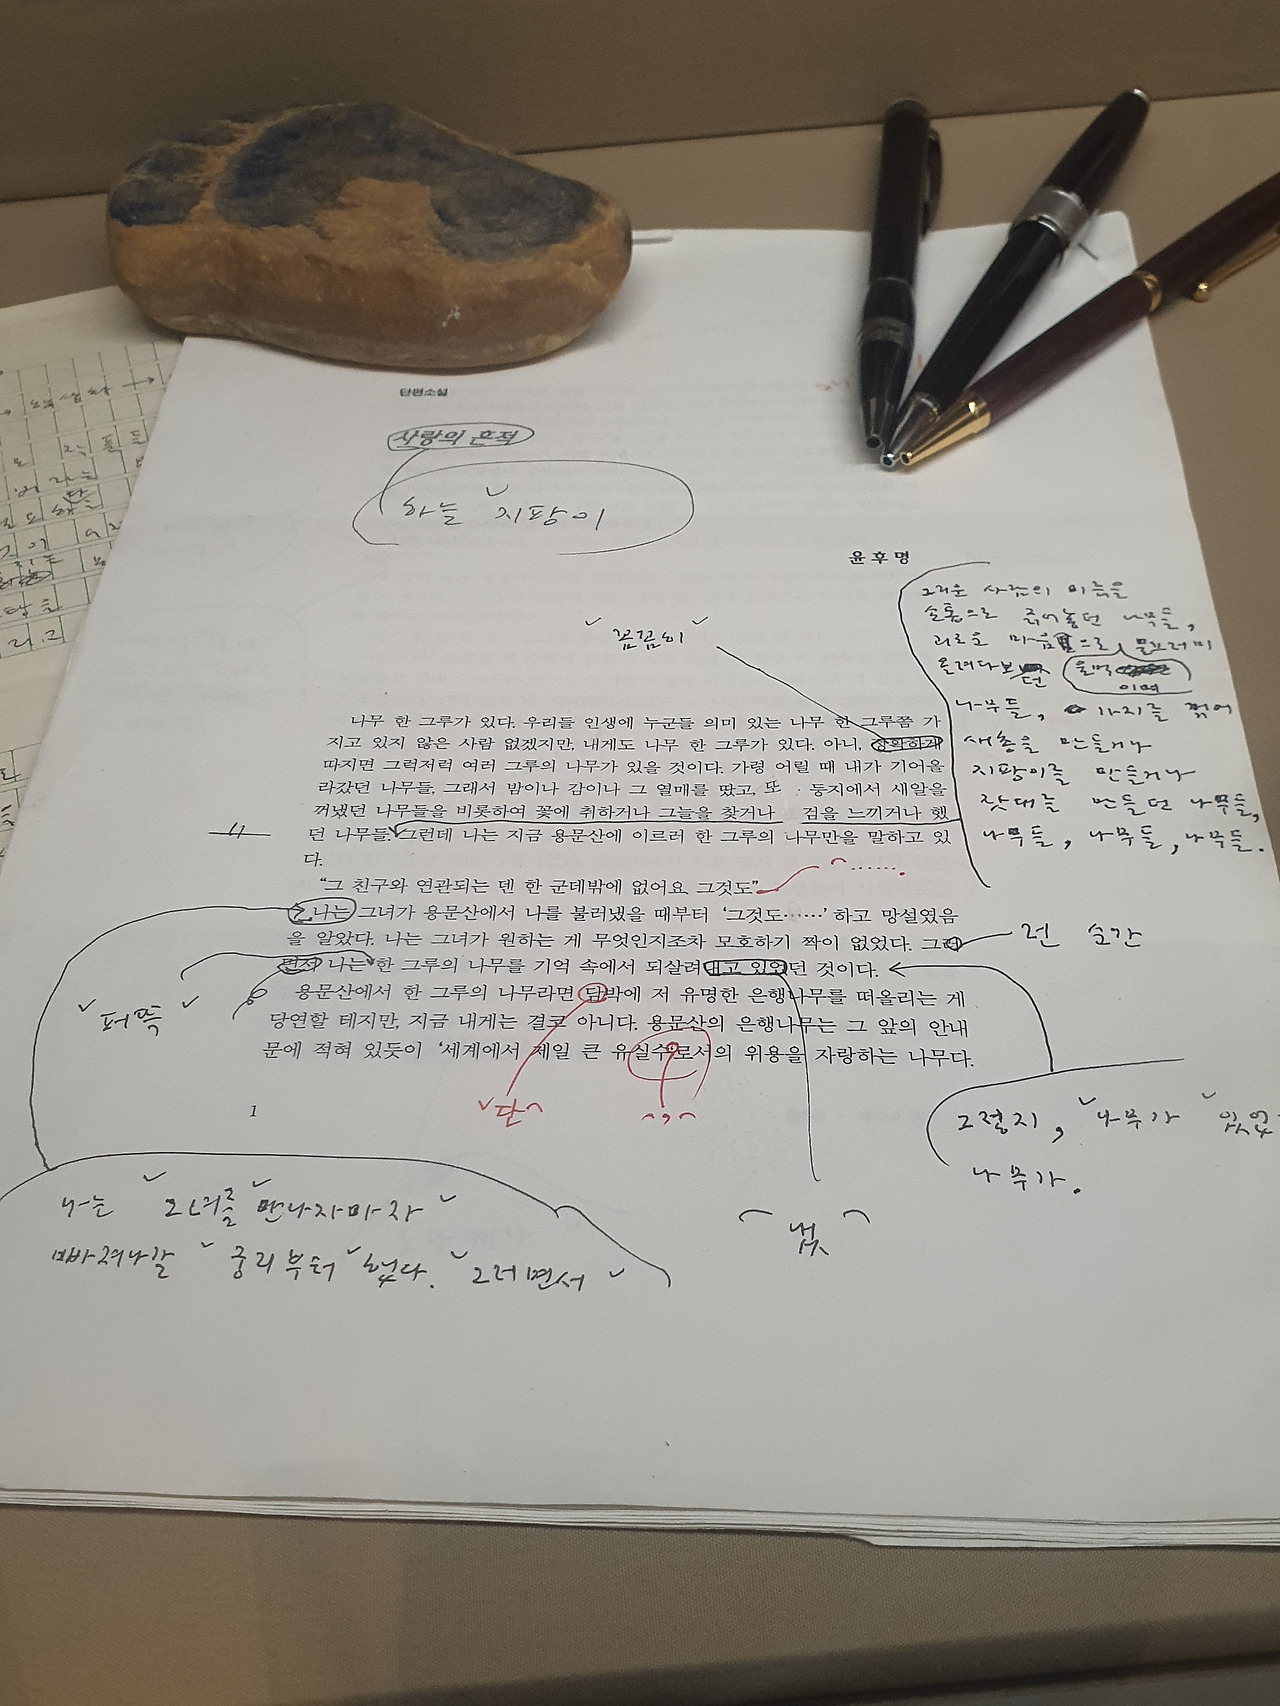 단편소설
사랑의 흔적
하늘 지팡이
윤후명
꼼꼼히
그리운 사람의 이름을
손톱으로 긁어놓던 나무들,
괴로운 마음으로 물끄러미
올려다보던
나무들, 가지를 꺾어
새총을 만들거나
지팡이를 만들거나
낚싯대를 만들던 나무들,
나무들, 나무들, 나무들.
나무 한 그루가 있다. 우리들 인생에 누군들 의미 있는 나무 한 그루쯤 가
지고 있지 않은 사람 없겠지만, 내게도 나무 한 그루가 있다. 아니, 정확하게
따지면 그럭저럭 여러 그루의 나무가 있을 것이다. 가령 어릴 때 내가 기어올
라갔던 나무들, 그래서 밤이나 감이나 그 열매를 땄고, 또 둥지에서 새알을
꺼냈던 나무들을 비롯하여 꽃에 취하거나 그늘을 찾거나 점을 느끼거나 했
던 나무들. 그런데 나는 지금 용문산에 이르러 한 그루의 나무만을 말하고 있
다.
“그 친구와 연관되는 덴 한 군데밖에 없어요. 그것도”
…….
나는 그녀가 용문산에서 나를 불러냈을 때부터 ‘그것도……’ 하고 망설였음
을 알았다. 나는 그녀가 원하는 게 무엇인지조차 모호하기 짝이 없었다. 그러
면서 나는 한 그루의 나무를 기억 속에서 되살려내고 있었던 것이다.
런 순간
퍼뜩
용문산에서 한 그루의 나무라면 담박에 저 유명한 은행나무를 떠올리는 게
당연할 테지만, 지금 내게는 결코 아니다. 용문산의 은행나무는 그 앞의 안내
문에 적혀 있듯이 ‘세계에서 제일 큰 유실수’로서의 위용을 자랑하는 나무다.
단
,
1
그렇지, 나무가 있었
나무가.
냈
나는 그녀를 만나자마자
빠져나갈 궁리부터 했다. 그러면서